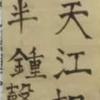 天江楓
半鍾聲